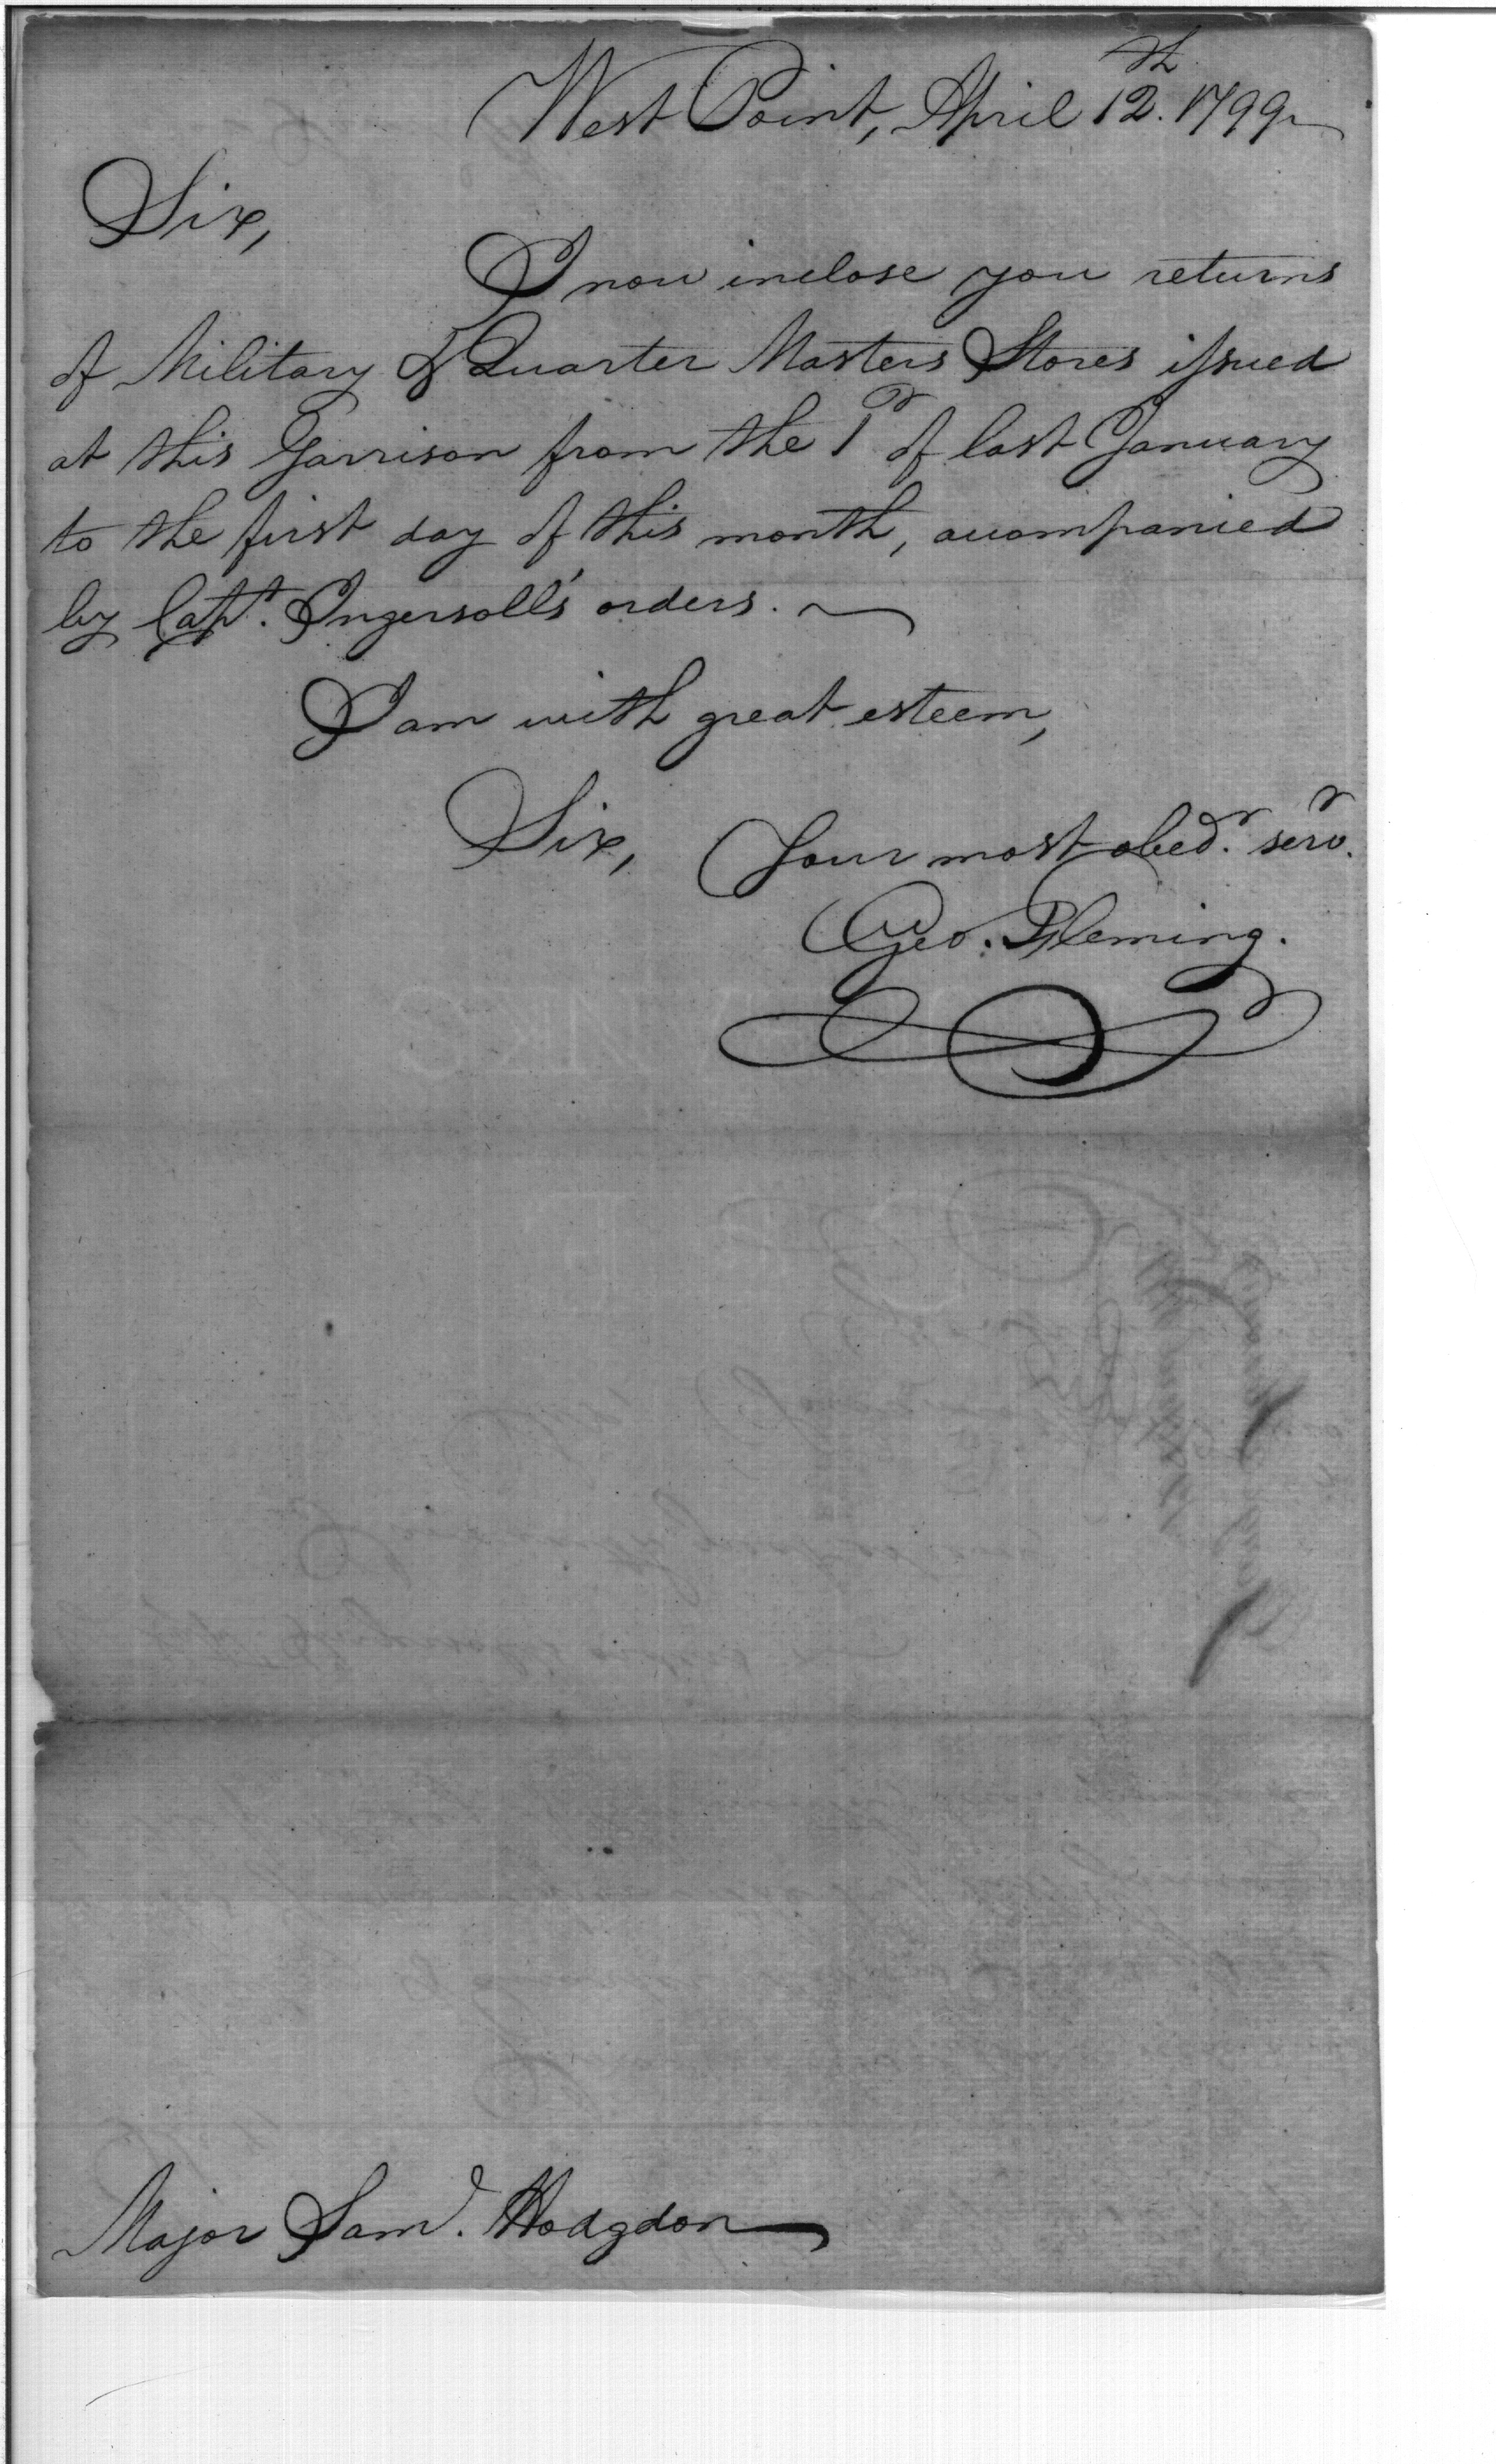 West Point, April 12th. 1799
Sir,
I now inclose you returns
of Military & Quarter Masters Stores issued
at this Garrison from the 1st of last January
to the first day of this month, accompanied
by Capt. Ingersoll's orders.
I am with great esteem,
Sir, Your most obedt. servt.
Geo. Fleming.
Major Saml. Hodgdon